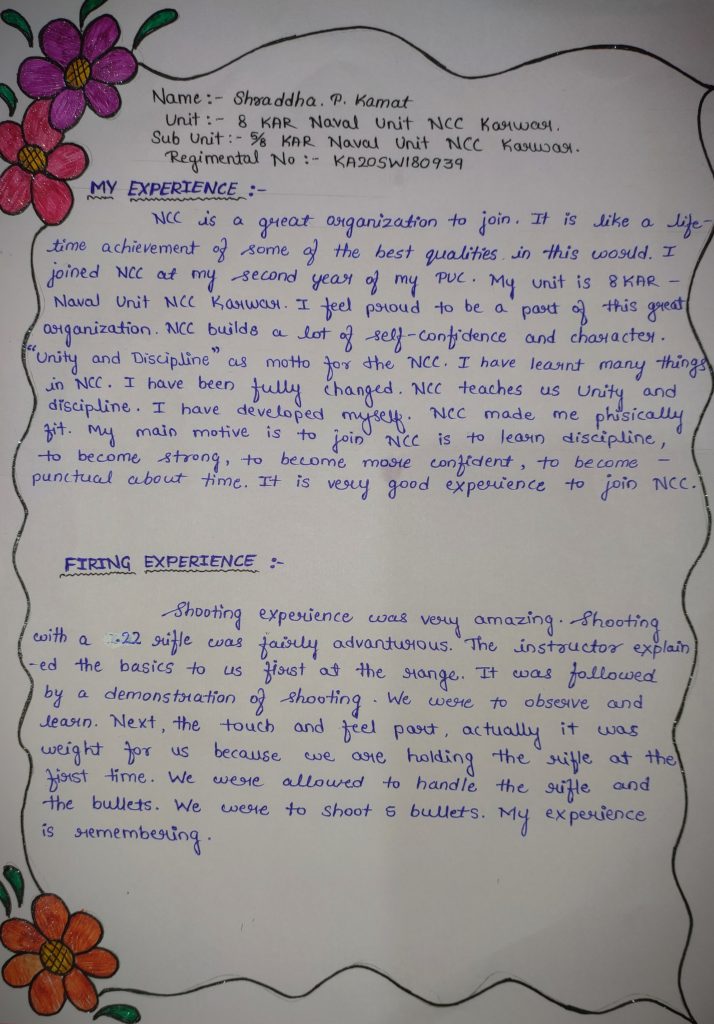 Name :- Shraddha. P. Kamat
Unit :- 8 KAR Naval Unit NCC Karwar.
Sub Unit :- 5/8 KAR Naval Unit NCC Karwar.
Regimental No :- KA20SW180939
MY EXPERIENCE :-
NCC is a great organization to join. It is like a life-
time achievement of some of the best qualities in this world. I
joined NCC at my second year of my PUC. My unit is 8 KAR -
Naval Unit NCC Karwar. I feel proud to be a part of this great
organization. NCC builds a lot of self-confidence and character.
"Unity and Discipline" as motto for the NCC. I have learnt many things
in NCC. I have been fully changed. NCC teaches us Unity and
discipline. I have developed myself. NCC made me phisically
fit. My main motive is to join NCC is to learn discipline,
to become strong, to become more confident, to become -
punctual about time. It is very good experience to join NCC.
FIRING EXPERIENCE :-
Shooting experience was very amazing. Shooting
with a .22 rifle was fairly advanturous. The instructor explain
-ed the basics to us first at the range. It was followed
by a demonstration of shooting. We were to observe and
learn. Next, the touch and feel part, actually it was
weight for us because we are holding the rifle at the
first time. We were allowed to handle the rifle and
the bullets. We were to shoot 5 bullets. My experience
is remembering.